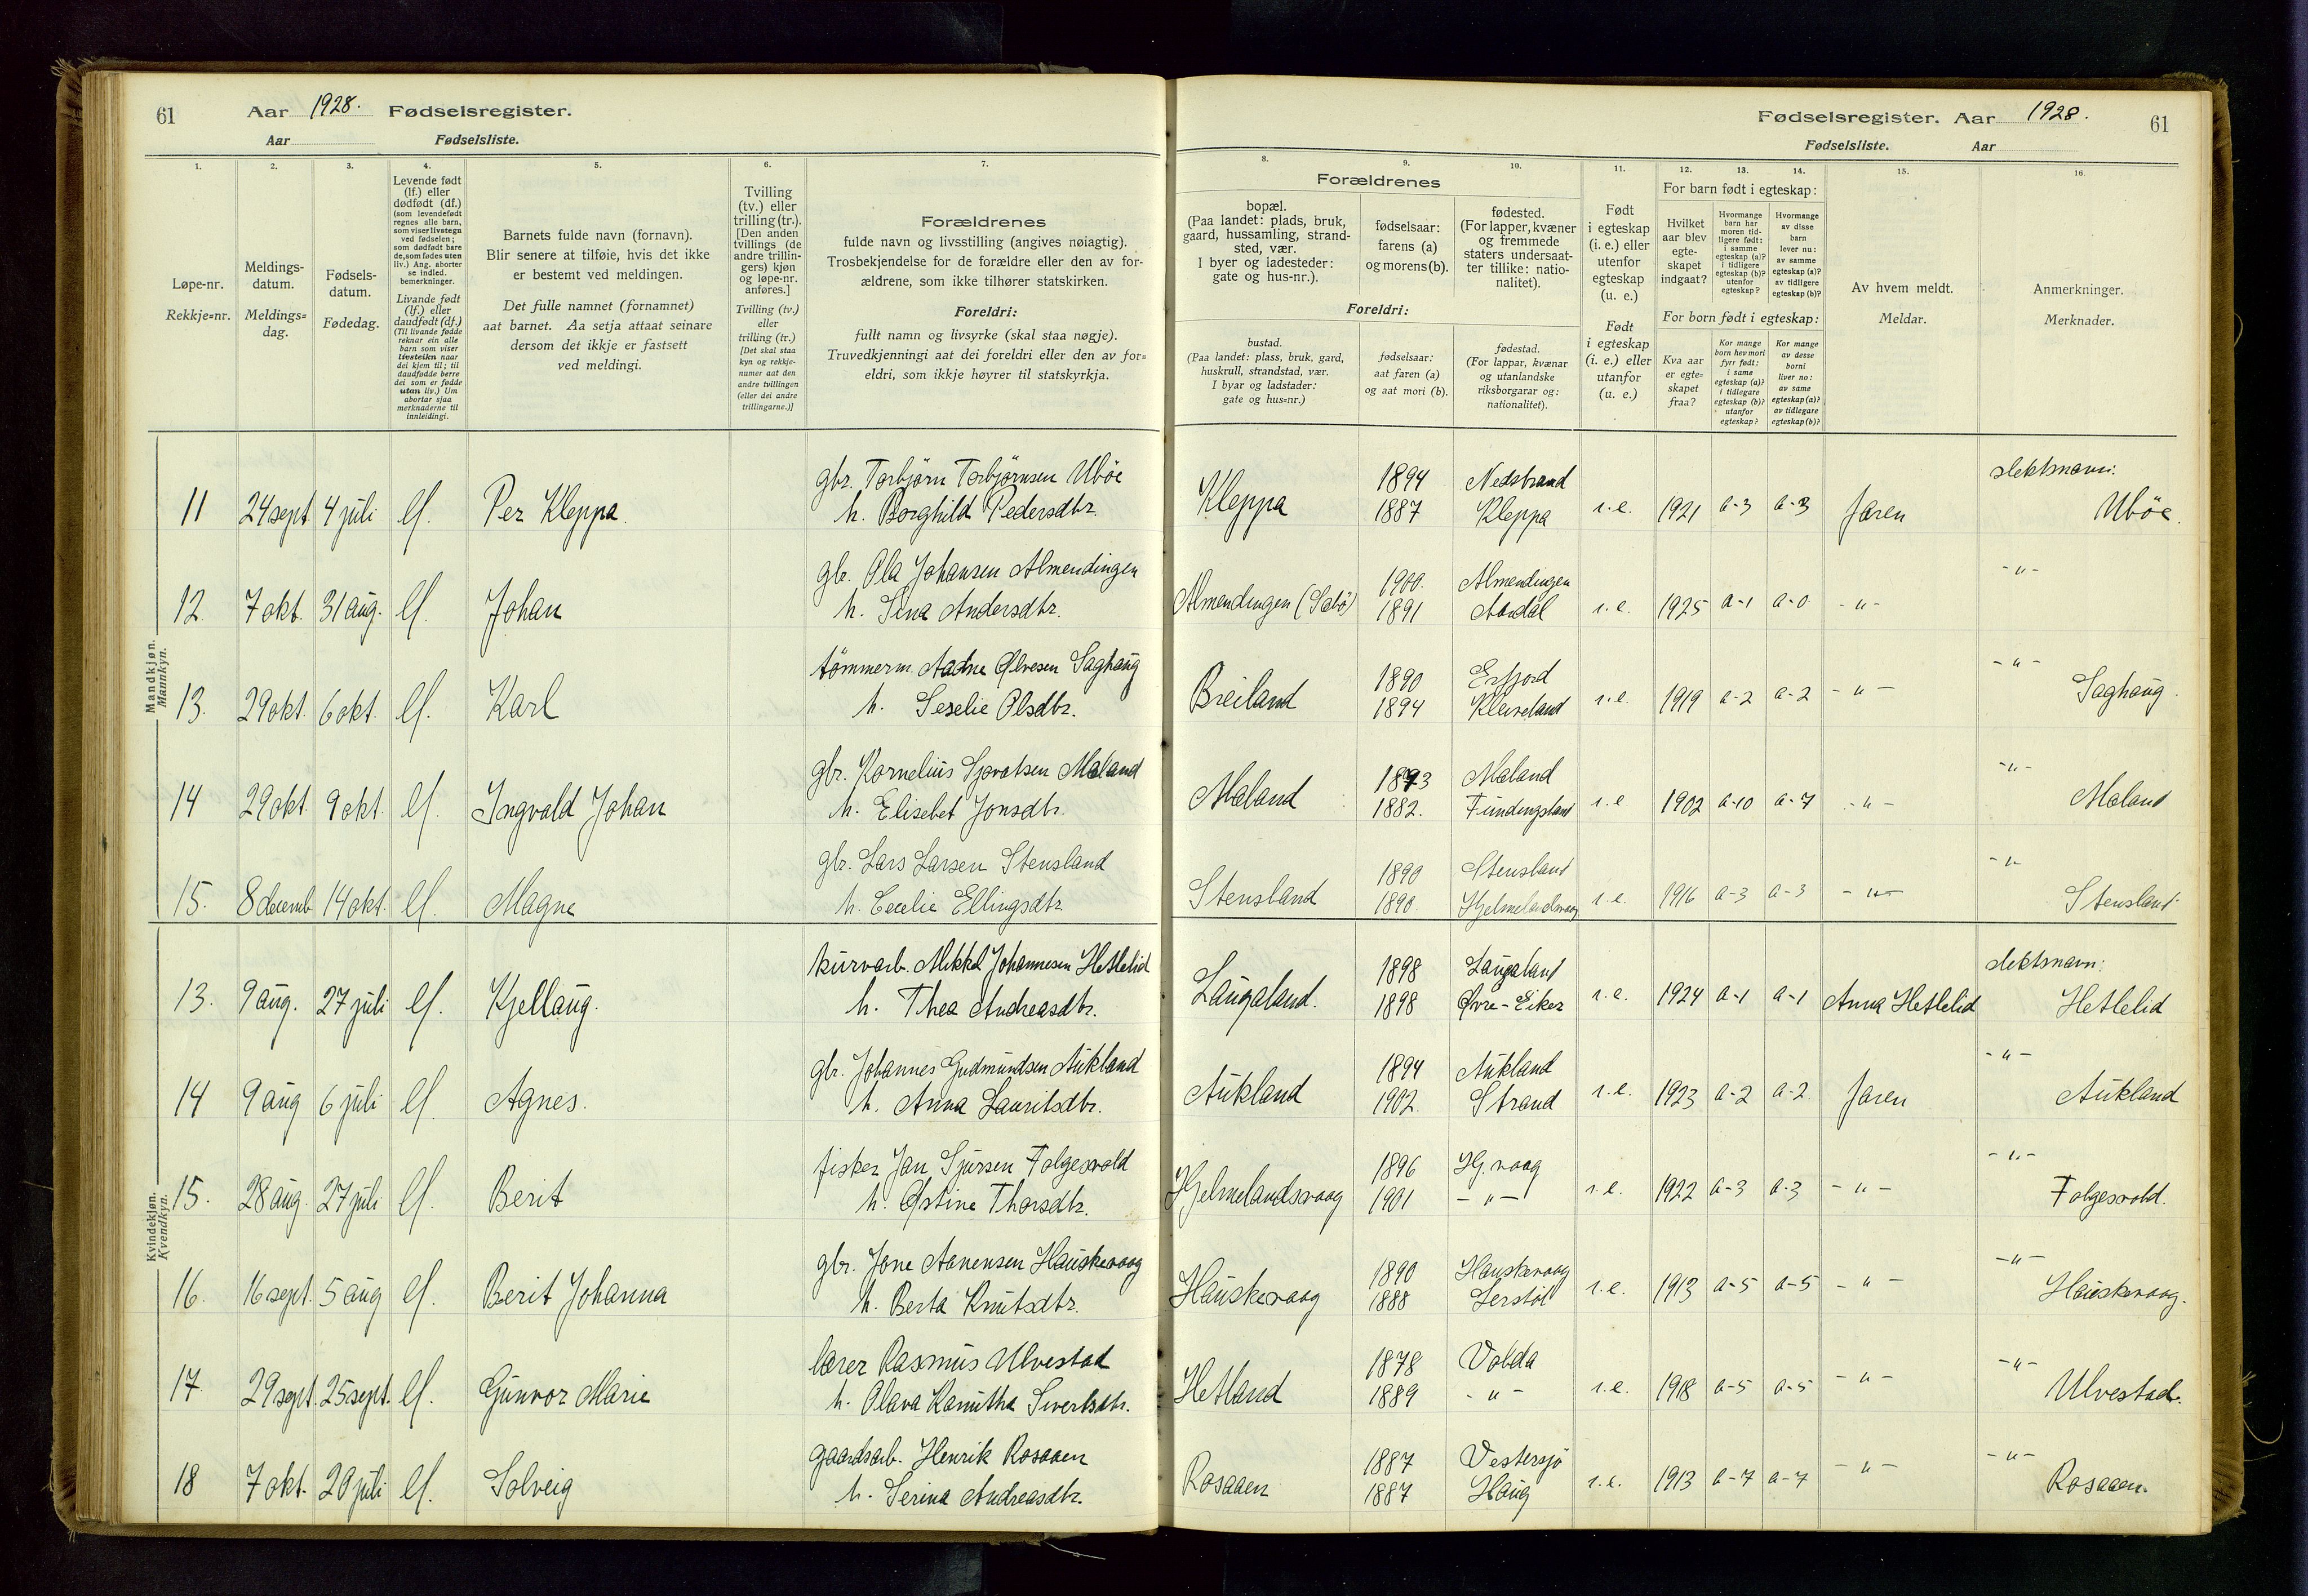 61 Aar 1928. Fødselsregister.
Aar Fødselsliste.
Fødselsregister. Aar 1928. 61
Fødselsliste. Aar
1. 2. 3. 4. 5. 6. 7.
Løpe-nr.
Rekkje=nr.
Meldings-
datum.
Meldings=
dag.
Fødsels-
datum.
Fødedag.
Levende født
(lf.) eller
dødfødt (df.)
(som levendefødt
regnes alle barn,
som viser livstegn
ved fødselen;
som dødfødt bare
de, som fødes uten
liv.) Ang. aborter
se indled.
bemerkninger.
Livande født
(lf.) eller
daudfødt (df.)
(Til livande fødde
reknar ein alle
barn som viser
livsteikn naar
dei kjem til; til
daudfødde berre
dei som er fødde
utan liv.) Um
abortar sjaa
merknaderne til
innleidingi.
Barnets fulde navn (fornavn).
Blir senere at tilføie, hvis det ikke
er bestemt ved meldingen.
Det fulle namnet (fornamnet)
aat barnet. Aa setja attaat seinare
dersom det ikkje er fastsett
ved meldingi.
Tvilling
(tv.) eller
trilling (tr.).
[Den anden
tvillings (de
andre trillin-
gers) kjøn
og løpe-nr.
anføres.]
Tvilling (tv.)
eller
trilling (tr.)
[Det skal staa
kyn og rekkje-
numer aat den
andre tvillingen
(eller dei andre
trillingarne.)]
Forældrenes
fulde navn og livsstilling (angives nøiagtig).
Trosbekjendelse for de forældre eller den av for-
ældrene, som ikke tilhører statskirken.
Foreldri:
fullt namn og livsyrke (skal staa nøgje).
Truvedkjenningi aat dei foreldri eller den av for=
eldri, som ikkje høyrer til statskyrkja.
8. 9. 10. 11. 12. 13. 14. 15. 16.
Forældrenes
bopæl.
(Paa landet: plads, bruk,
gaard, hussamling, strand-
sted, vær.
I byer og ladesteder:
gate og hus-nr.).
fødselsaar:
farens (a)
og morens (b).
fødested.
(For lapper, kvæner
og fremmede
staters undersaat-
ter tillike: natio-
nalitet).
Foreldri:
bustad.
(Paa landet: plass, bruk, gard,
huskrull, strandstad, vær.
I byar og ladstader:
gate og hus=nr.)
fødselsaar:
aat faren (a)
og aat mori (b).
fødestad.
(For lappar, kvænar
og utanlandske
riksborgarar og:
nationalitet).
Født
i egteskap
(i. e.) eller
utenfor
egteskap
(u. e.)
Født
i egteskap
(i. e.) eller
utanfor
(u. e.)
For barn født i egteskap:
Hvilket
aar blev
egte-
skapet
indgaat?
Hvormange
barn har
moren tid-
ligere født:
i samme
egteskap (a)?
i tidligere
egteskap (b)?
utenfor
egteskap?
Hvormange
av disse
barn
lever nu:
av samme
egteskap (a)?
av tidligere
egteskap (b)?
For born født i egteskap:
Kva aar
er egte=
skapet
fraa?
Kor mange
born hev mori
fyrr født:
i same
egteskap (a)?
i tidlegare
egteskap (b)?
utanfor
egteskap?
Kor mange
av desse
borni
liver no:
av same
egteskap (a)?
av tidlegare
egteskap (b)?
Av hvem meldt.
Meldar.
Anmerkninger.
Merknader.
Mandkjøn.
Mannkyn.
gbr. Torbjörn Torbjörnsen Uböe 1894 Nedstrand slektsnavn:
11 24 sept 4 juli lf. Per Kleppa. h. Borghild Pedersdtr. Kleppa 1887 Kleppa i.e. 1921 a-3 a-3 Faren Uböe.
gbr. Ola Johansen Almendingen 1900. Almendingen -"-
12. 7 okt. 31 aug. lf. Johan h. Sina Andersdtr. Almendingen (Sæbö) 1891 Aardal i.e. 1925 a-1 a-0 -"-
tömmerm. Aadne Ølvesen Saghaug 1890 Erfjord -"-
13. 29 okt. 6 okt. lf. Karl h. Seselie Olsdtr. Breiland 1894 Kleiveland i.e. 1919 a-2 a-2 -"- Saghaug.
gbr. Kornelius Sjovatsen Mæland 1873 Mæland -"-
14 29 okt. 9 okt. lf. Ingvald Johan h. Elisebet Jonsdtr. Mæland 1882. Fundingsland i.e 1902 a-10 a-7 -"- Mæland
gbr. Lars Larsen Stensland 1890 Stensland -"-
15. 8 decemb 14 okt. lf. Magne h. Cecelie Ellingsdtr. Stensland 1890. Hjelmelandsvaag i.e. 1916 a-3 a-3 -"- Stensland.
Kvindekjøn.
Kvendkyn.
kurvarb. Mikkel Johannesen Hetlelid 1898 Laugaland slektsnavn:
13. 9 aug. 27 juli lf. Kjellaug. h. Thea Andreasdtr. Laugaland. 1898 Øvre-Eiker i.e. 1924 a-1 a-1 Anna Hetlelid Hetlelid
gbr. Johannes Gudmundsen Aukland 1894 Aukland -"-
14 9 aug 6 juli lf. Agnes. h. Anna Lauritsdtr. Aukland 1902. Strand i.e. 1923 a-2 a-2. Faren Aukland
fisker Jan Sjursen Folgesvold 1896 Hj.vaag -"-
15. 28 aug. 27 juli lf. Berit h. Østine Thorsdtr. Hjelmelandsvaag 1901 -"- i.e. 1922 a-3 a-3 -"- Folgesvold.
gbr. Jone Aanensen Hauskevaag 1890 Hauskevaag -"-
16. 16 sept. 5 aug lf. Berit Johanna h. Berta Knutsdtr. Hauskevaag 1888 Jerstöl i.e. 1913 a-5 a-5 -"- Hauskevaag.
lærer Rasmus Ulvestad 1878 Volda -"-
17. 29 sept. 25 sept. lf. Gunvor Marie h. Olava Kanutha Sivertsdtr. Hetland 1889 -"- i.e. 1918 a-5 a-5 -"- Ulvestad.
gaardsarb. Henrik Rosaaen 1887 Vestersjö -"-
18 7 okt. 20 juli lf. Solveig h. Serina Andreasdtr. Rosaaen 1887 Haug i.e. 1913 a-7 a-7 -"- Rosaaen.